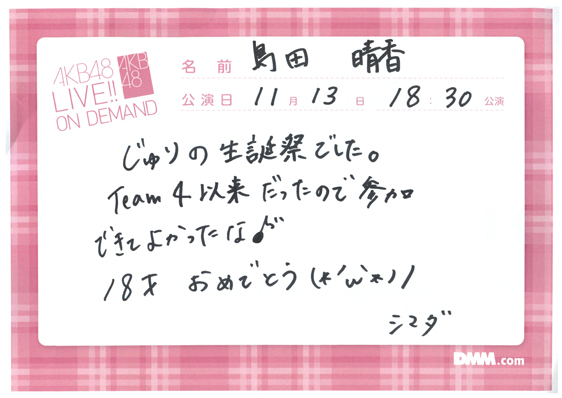 AKB48
LIVE!!
ON DEMAND
AKB
48
名前 島田 晴香
公演日 11月13日 18:30公演
じゅりの生誕祭でした。
Team 4 以来だったので参加
できてよかったな♪
18才 おめでとう(*´ω`*)ノ
シマダ
DMM.com